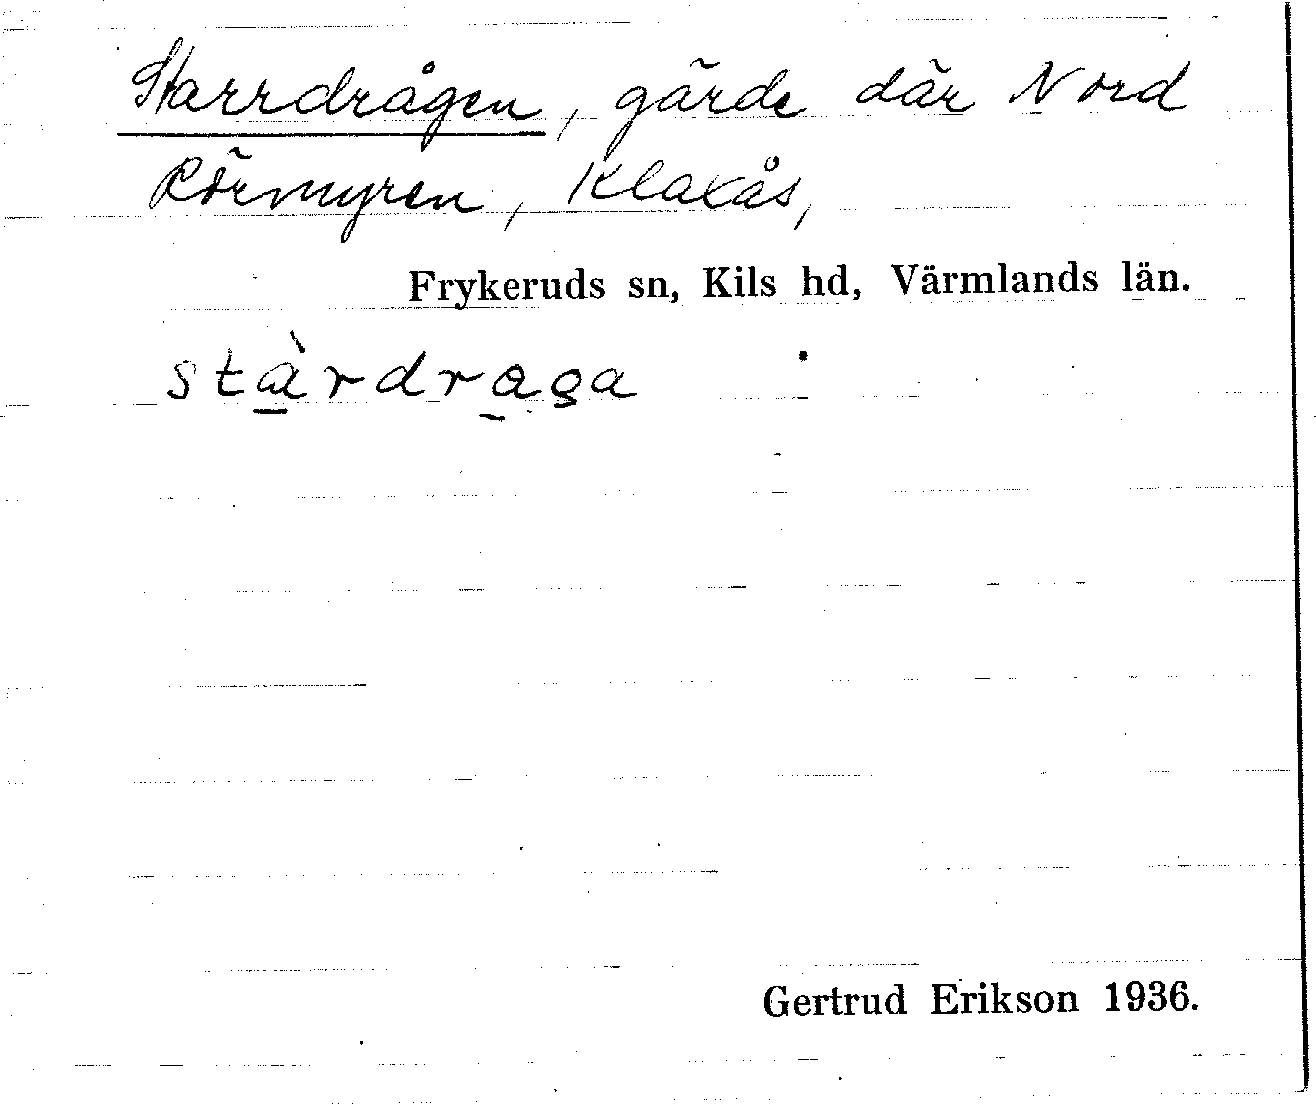 Starrdrågen, gärde där Nord
Rörmyren, Klaxås,
Frykeruds sn, Kils hd, Värmlands län.
stàrdraga
Gertrud Erikson 1936.